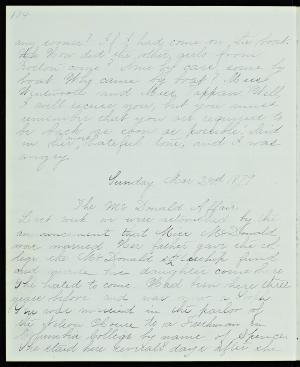 134
any sooner? If I had come on the boat.
How did the other girls from
Boston come? Some by cars some by
boat. Why came by boat? Miss
and Miss. Well
I will excuse you, but you must
remember that you are required to
be back as soon as possible, and
in her most hateful tone, and I was
angry.
Sunday Mar 23rd 1879
The McDonald Affair
Last week we were astonished by the
announcement that Miss McDonald
was married. Her father gave the col-
lege the McDonald scholarship fund
and made his daughter come here
She hated to come. Had been here three
years before and was now
She was married in the parlor of
the Nelson House to a Freshman in
Columbia College by name of Spencer
She staid here several days after she